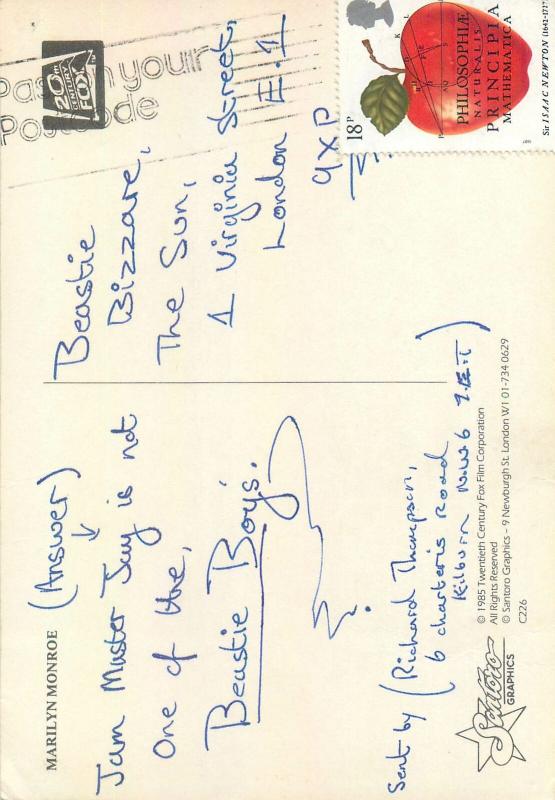 MARILYN MONROE
(Answer)
Jam Master Jay is not
one of the,
Beastie Boys.
Sent by (Richard Thompson,
6 charteris Road
Kilburn N.W.6 7.E.T)
Santoro
GRAPHICS
© 1985 Twentieth Century Fox Film Corporation
All Rights Reserved
© Santoro Graphics – 9 Newburgh St. London W1 01-734 0629
C226
20th
CENTURY
FOX
your
Postcode
Beastie
Bizzare,
The Sun,
1 Virginia Street,
London E.1
9XP
18P
PHILOSOPHIÆ
NATURALIS
PRINCIPIA
MATHEMATICA
Sir ISAAC NEWTON (1642-1727)